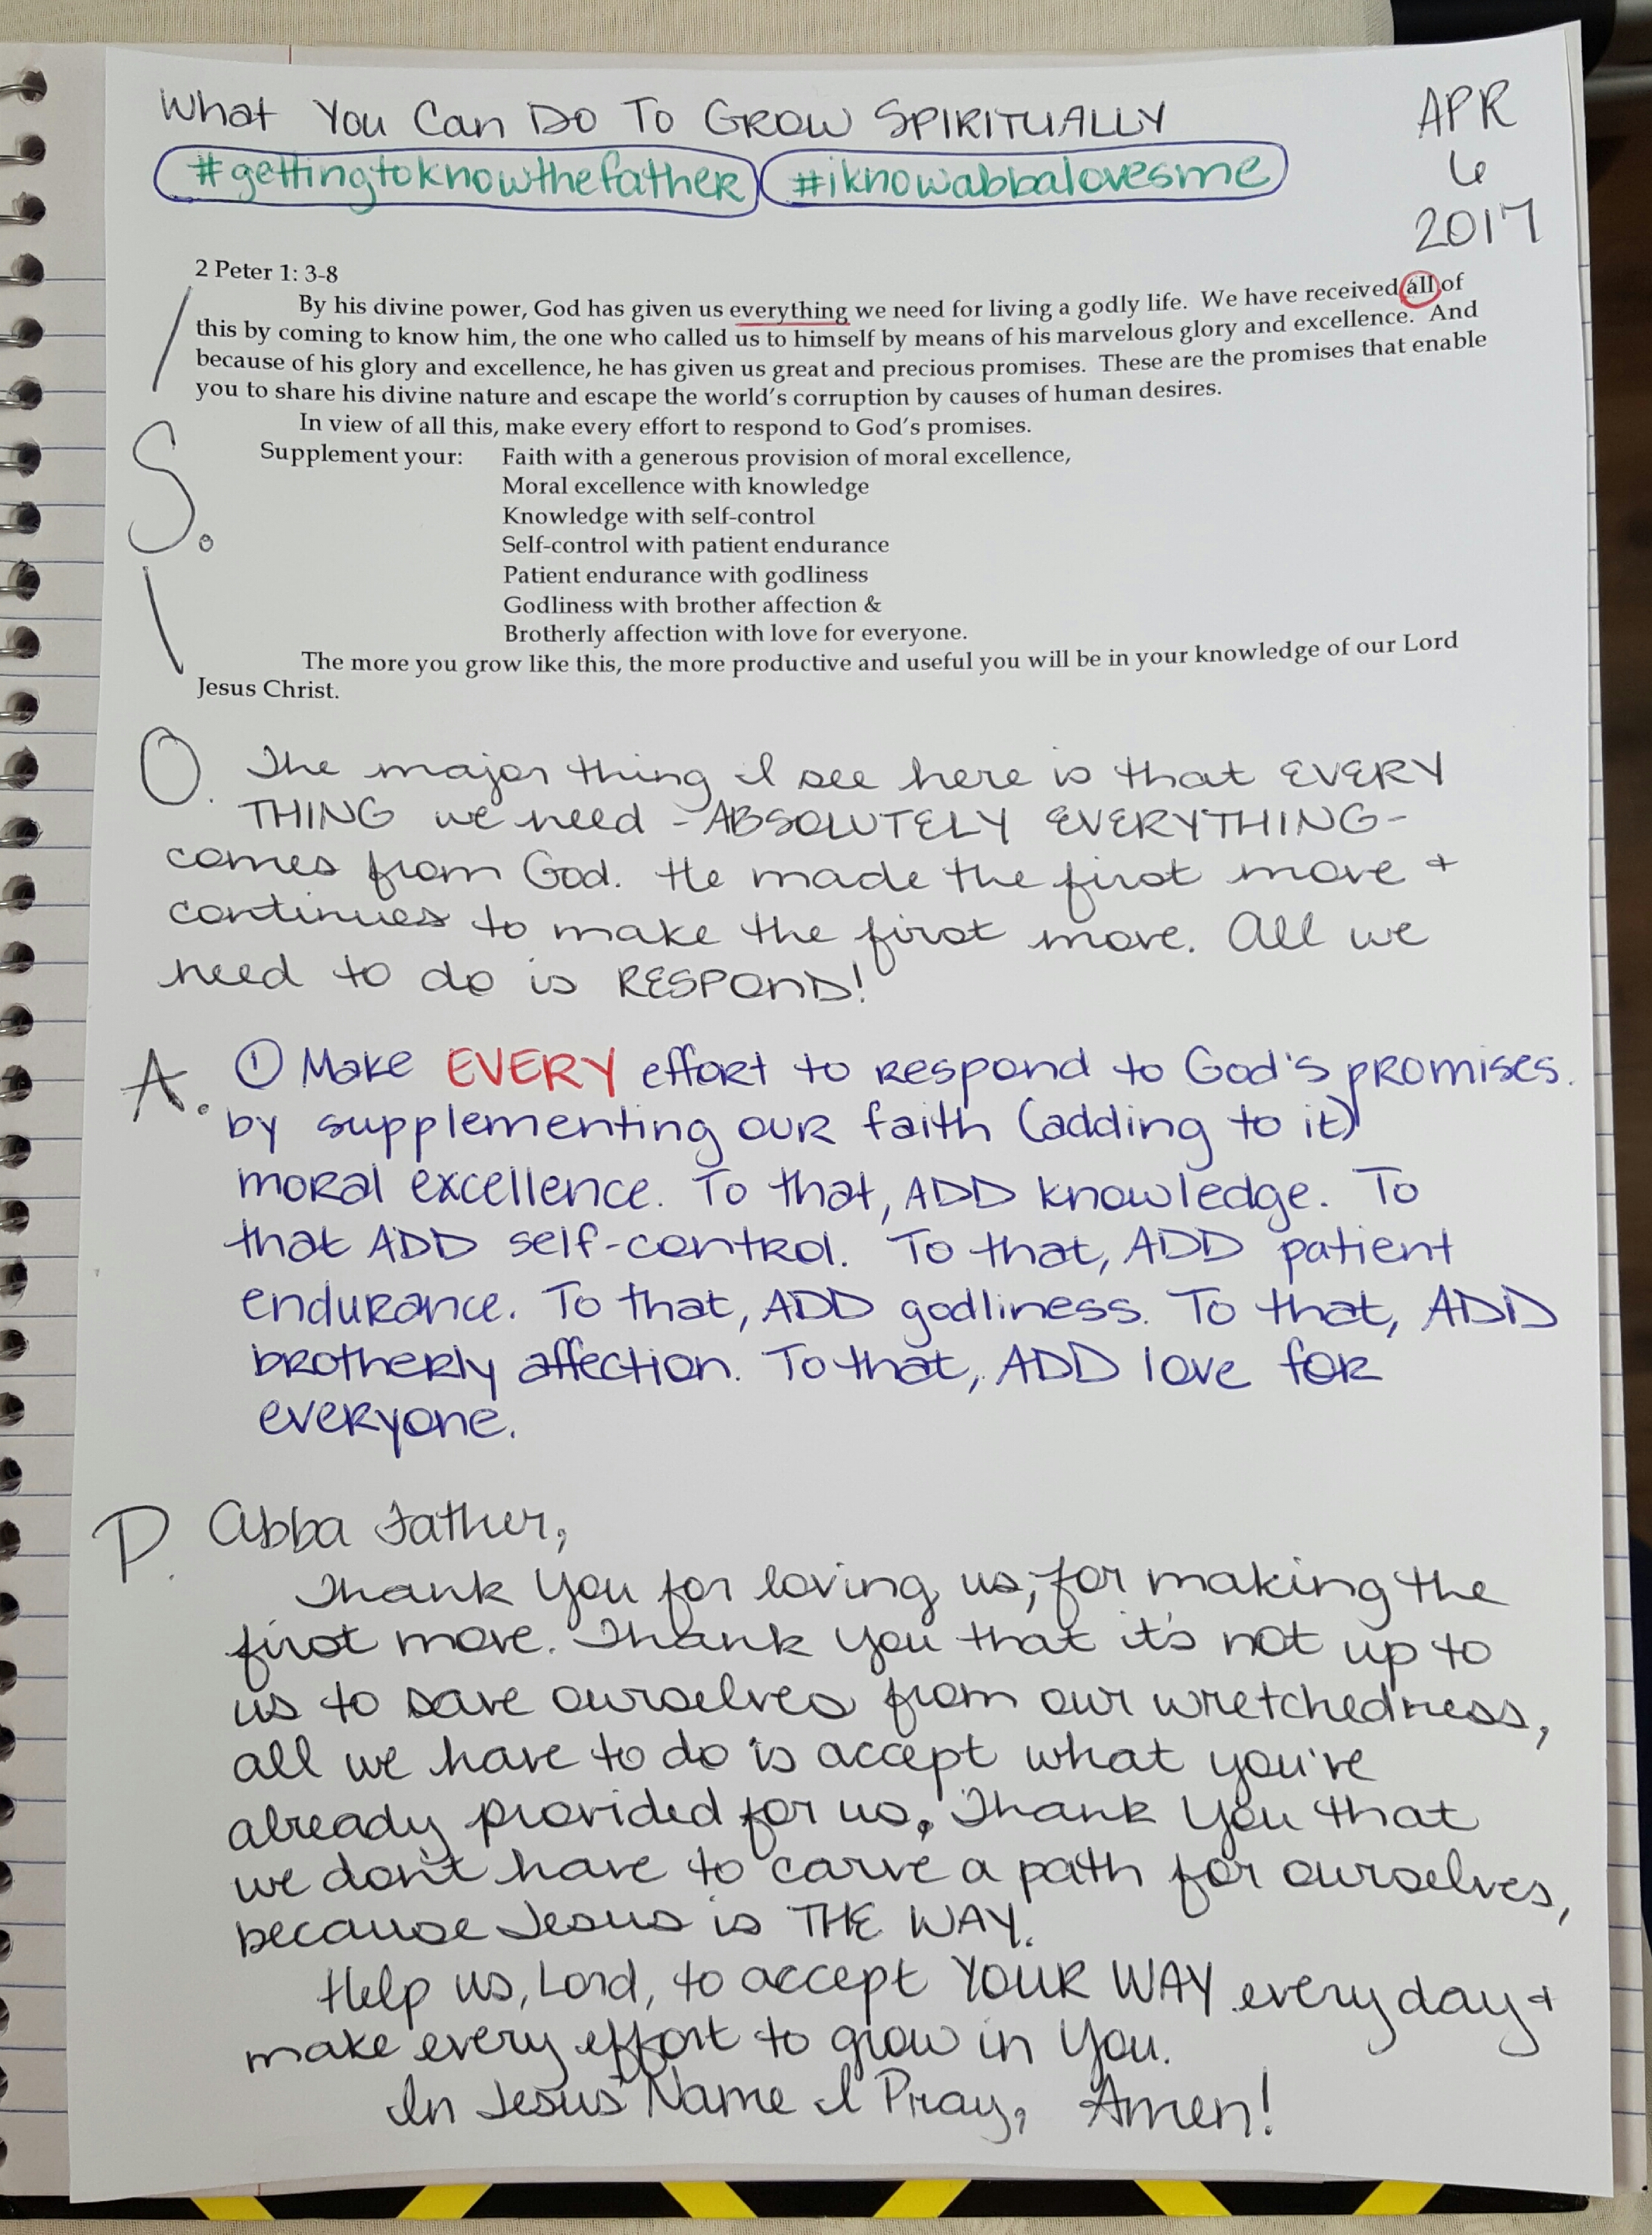 What You Can Do To GROW SPIRITUALLY
#gettingtoknowthefather #iknowabbalovesme
APR
6
2017
2 Peter 1: 3-8
By his divine power, God has given us everything we need for living a godly life. We have received all of
this by coming to know him, the one who called us to himself by means of his marvelous glory and excellence. And
because of his glory and excellence, he has given us great and precious promises. These are the promises that enable
you to share his divine nature and escape the world's corruption by causes of human desires.
In view of all this, make every effort to respond to God's promises.
Supplement your: Faith with a generous provision of moral excellence,
Moral excellence with knowledge
Knowledge with self-control
Self-control with patient endurance
Patient endurance with godliness
Godliness with brother affection &
Brotherly affection with love for everyone.
The more you grow like this, the more productive and useful you will be in your knowledge of our Lord
Jesus Christ.
S.
O. The major thing I see here is that EVERY
THING we need - ABSOLUTELY EVERYTHING -
comes from God. He made the first move +
continues to make the first move. All we
need to do is RESPOND!
A. ① Make EVERY effort to respond to God's promises.
by supplementing our faith (adding to it)
moral excellence. To that, ADD knowledge. To
that ADD self-control. To that, ADD patient
endurance. To that, ADD godliness. To that, ADD
brotherly affection. To that, ADD love for
everyone.
P. Abba Father,
Thank You for loving us, for making the
first move. Thank You that it's not up to
us to save ourselves from our wretchedness,
all we have to do is accept what you've
already provided for us. Thank You that
we don't have to carve a path for ourselves,
because Jesus is THE WAY.
Help us, Lord, to accept YOUR WAY every day +
make every effort to grow in You.
In Jesus' Name I Pray, Amen!